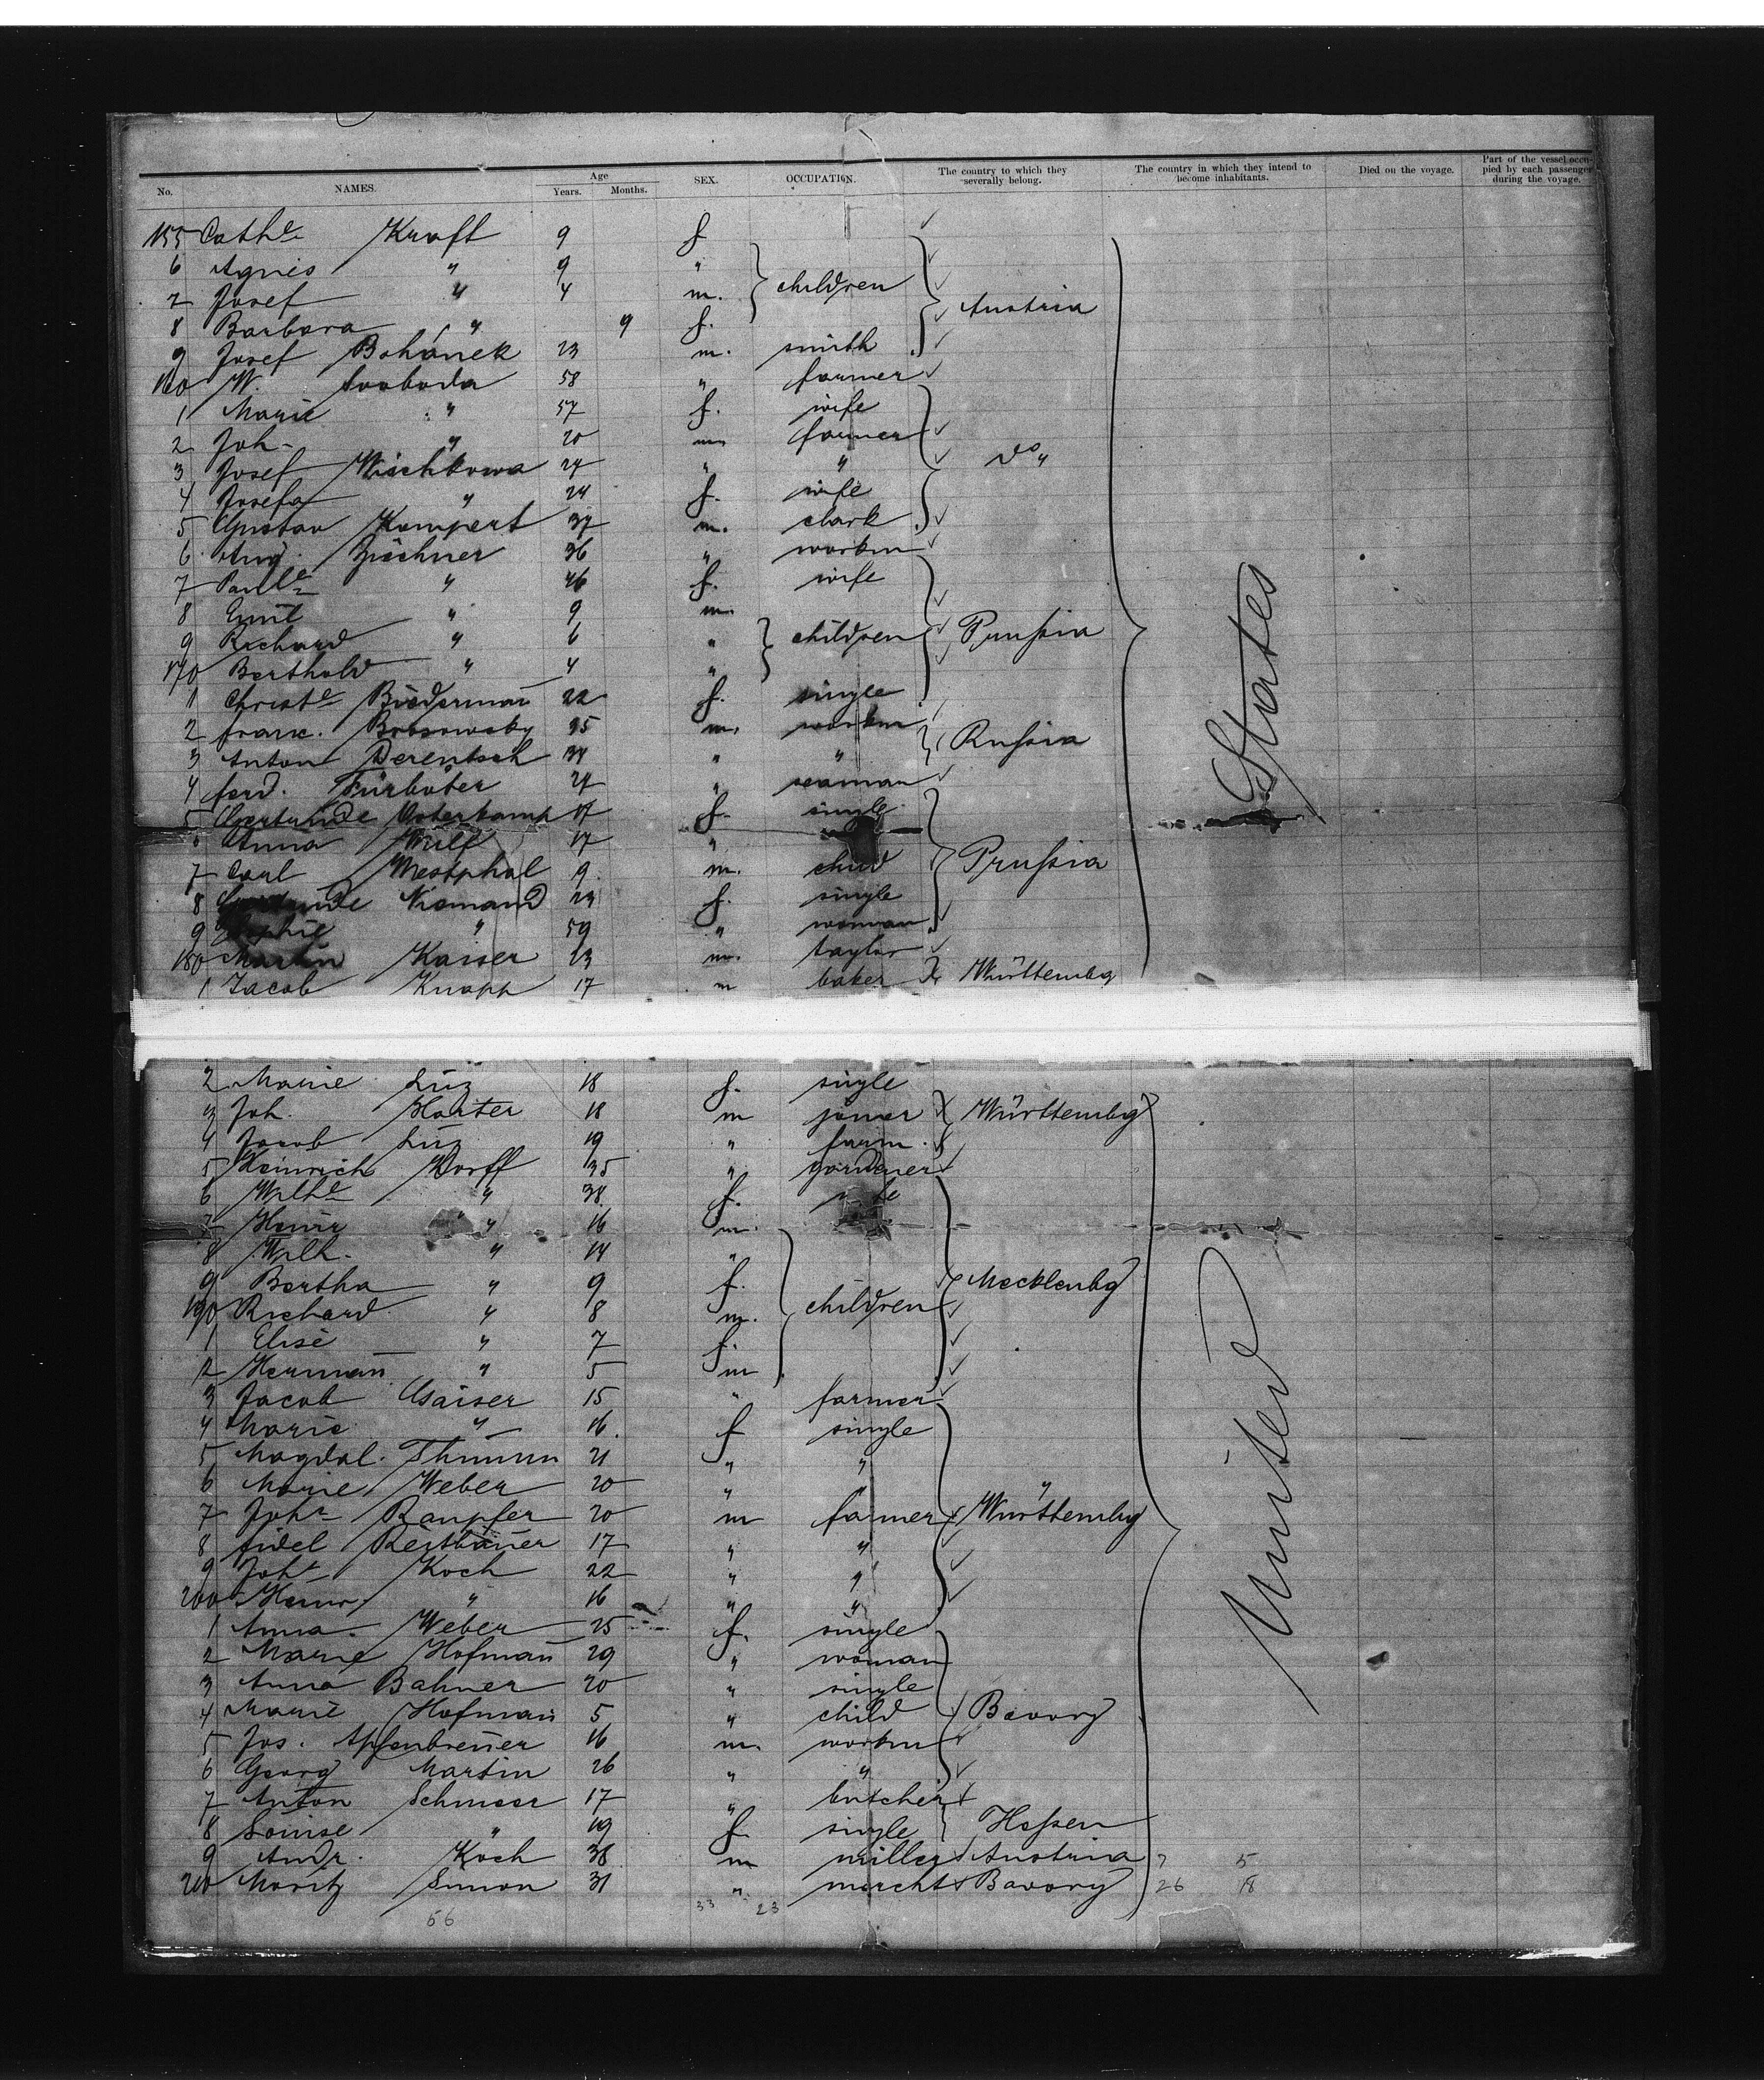 No. NAMES. Age Years. Months. SEX. OCCUPATION. The country to which they severally belong. The country in which they intend to become inhabitants. Died on the voyage. Part of the vessel occupied by each passenger during the voyage.
155 Cathe Kraft 9 f
6 Agnes " 9 "
7 Josef " 4 m. children
8 Barbara " 9 f. Austria
9 Josef Bohánek 23 m. smith
160 W. Svoboda 58 " farmer
1 Marie " 57 f. wife
2 Joh. " 20 m. farmer
3 Josef Wischkowa 27 " " do "
4 Josefa " 24 f. wife
5 Gustav Kumpert 37 m. clark
6 Aug. Zischner 36 " workm
7 Paulle " 46 f. wife
8 Emil " 9 m.
9 Richard " 6 " children Prussia
170 Berthold " 4 "
1 Christe Biederman 22 f. single
2 franc. Brosowsky 35 m. workm
3 Anton Derentsch 34 " " Russia
4 ferd. Fürböter 27 " seaman
5 Gertrude Osterkamp 17 f. single
Anna Wulf 17 "
7 Carl Westphal 9. m. child Prussia
8 Niemand 24 f. single
9 Sophie " 59 " woman
180 Martin Kaiser 23 m. taylor
1 Jacob Knapp 17 m baker Württembg
States
2 Marie Luz 18 f. single
3 Joh. Harter 18 m joiner Württembg
4 Jacob Luz 19 " farm.
5 Heinrich Korff 35 " gardener
6 Wilhe " 38 f. wife
7 Heinr " 16 m.
8 Wilh. " 14 "
9 Bertha " 9 f. Mecklenbg
190 Richard " 8 m. children
1 Elise " 7 f.
2 Herman " 5 m
3 Jacob Gaiser 15 " farmer
4 Marie " 16. f single
5 Magdal. Thumm 21 " "
6 Marie Weber 20 " "
7 Johs Raupfer 20 m farmer Württembg
8 fidel 17 " "
9 Johs Koch 22 " "
200 Heinr. " 16 " "
1 Anna. Weber 25 f. single
2 Marie Hofman 29 " woman
3 Anna Bahner 20 " single
4 Marie Hofman 5 " child Bavary
5 Jos. Apfenbreuer 16 m. workm
6 Georg Martin 26 " "
7 Anton Schmeer 17 " butcher
8 Louise " 19 f. single Hessen
9 Andr. Koch 38 m miller Austria 7 5
210 Moritz Simon 31 " mercht Bavary 26 18
56 33 23
United